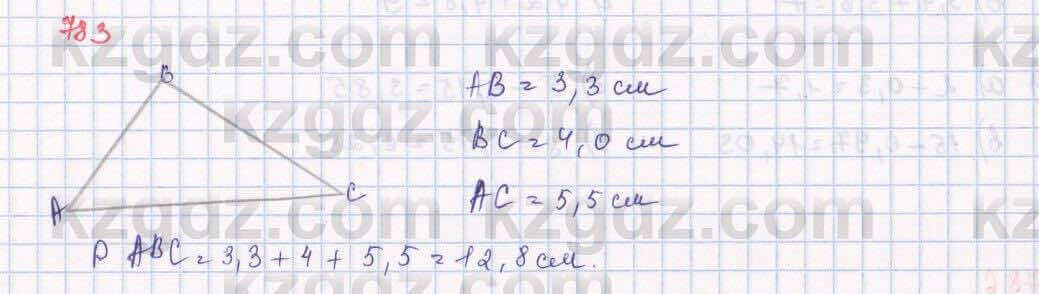 783
kzgdz.com kzgdz.com
B
AB = 3,3 см
kzgdz.com
BC = 4,0 см
A
C
AC = 5,5 см
kzgdz.com kzgdz.com
P ABC = 3,3 + 4 + 5,5 = 12,8 см.